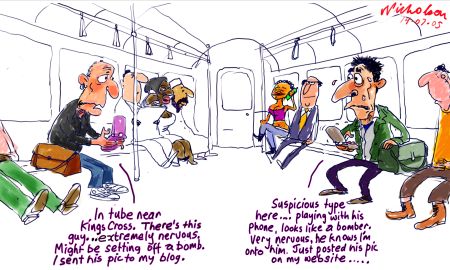 Nicholson
19-07-05
In tube near
Kings Cross. There's this
guy...extremely nervous.
Might be setting off a bomb.
I sent his pic to my blog.
Suspicious type
here.... playing with his
phone, looks like a bomber.
Very nervous, he knows I'm
onto him. Just posted his pic
on my website.....